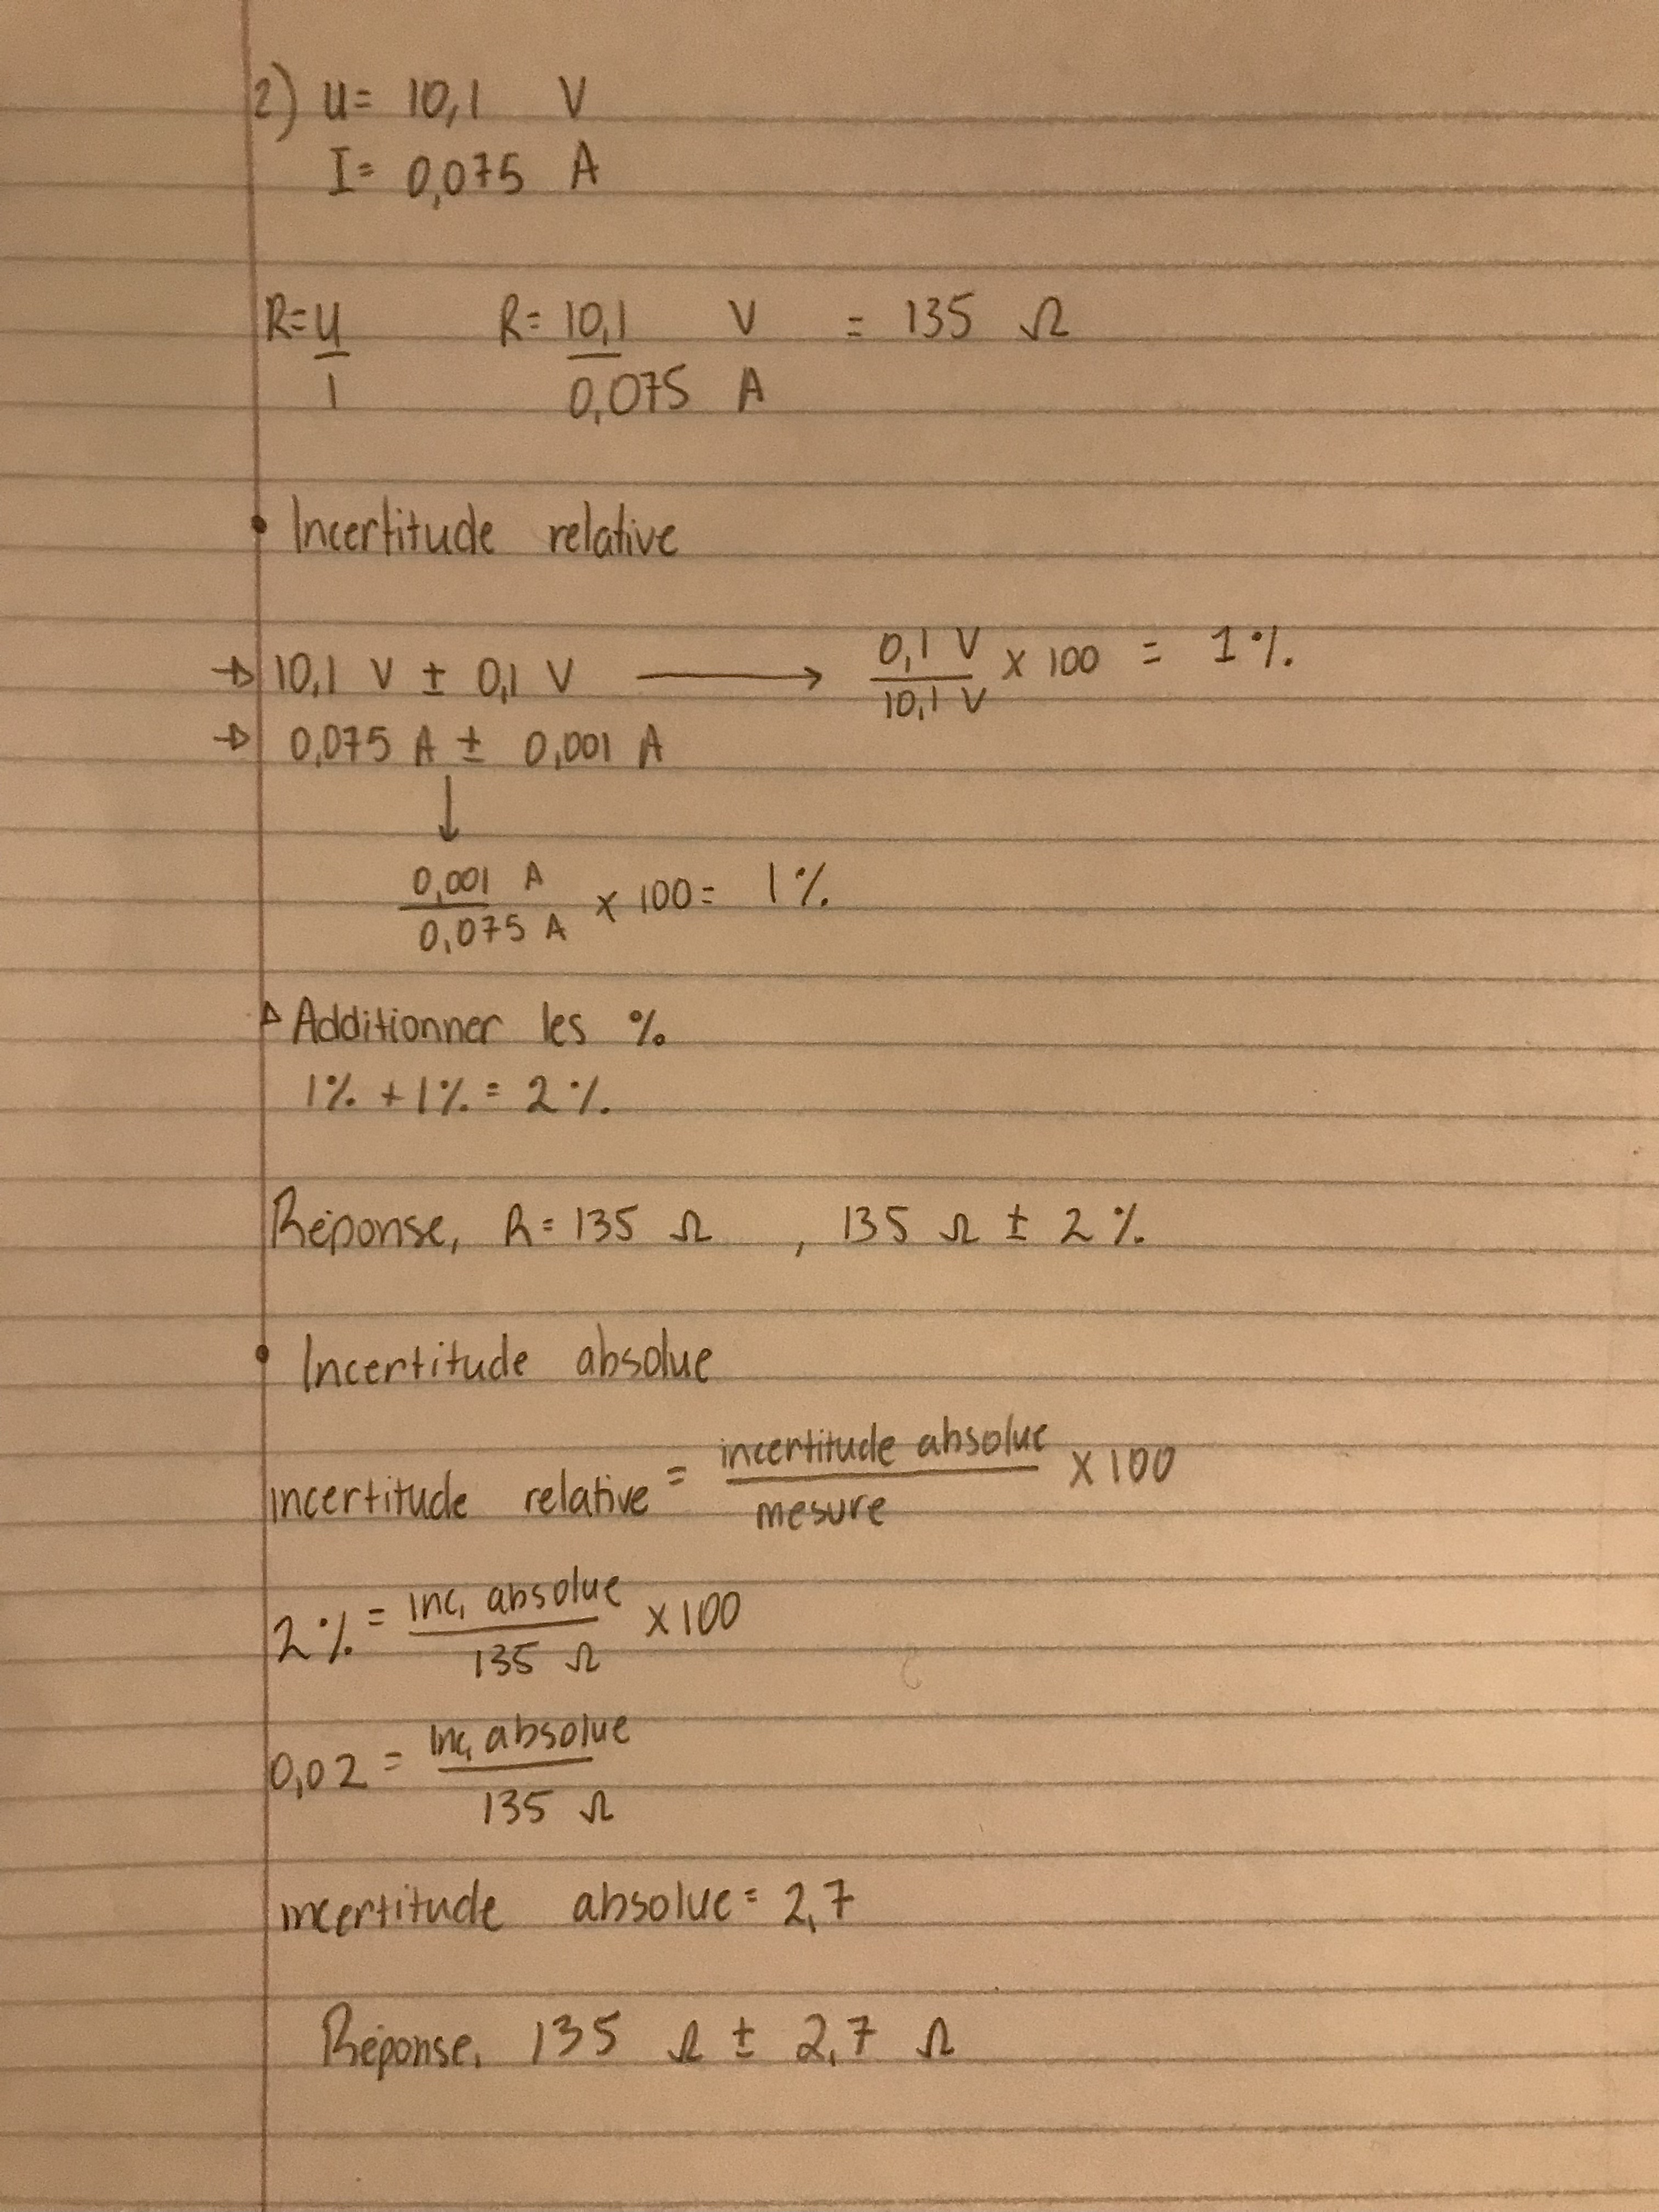 2) U= 10,1 V
I= 0,075 A
R= U/I R= 10,1 V / 0,075 A = 135 Ω
• Incertitude relative
→ 10,1 V ± 0,1 V ⟶ 0,1 V / 10,1 V x 100 = 1%
→ 0,075 A ± 0,001 A
↓
0,001 A / 0,075 A x 100= 1%
▷ Additionner les %
1% + 1% = 2%
Réponse, R= 135 Ω , 135 Ω ± 2%
• Incertitude absolue
incertitude relative = incertitude absolue / mesure x 100
2% = inc, absolue / 135 Ω x 100
0,02 = Inc, absolue / 135 Ω
incertitude absolue = 2,7
Réponse, 135 Ω ± 2,7 Ω